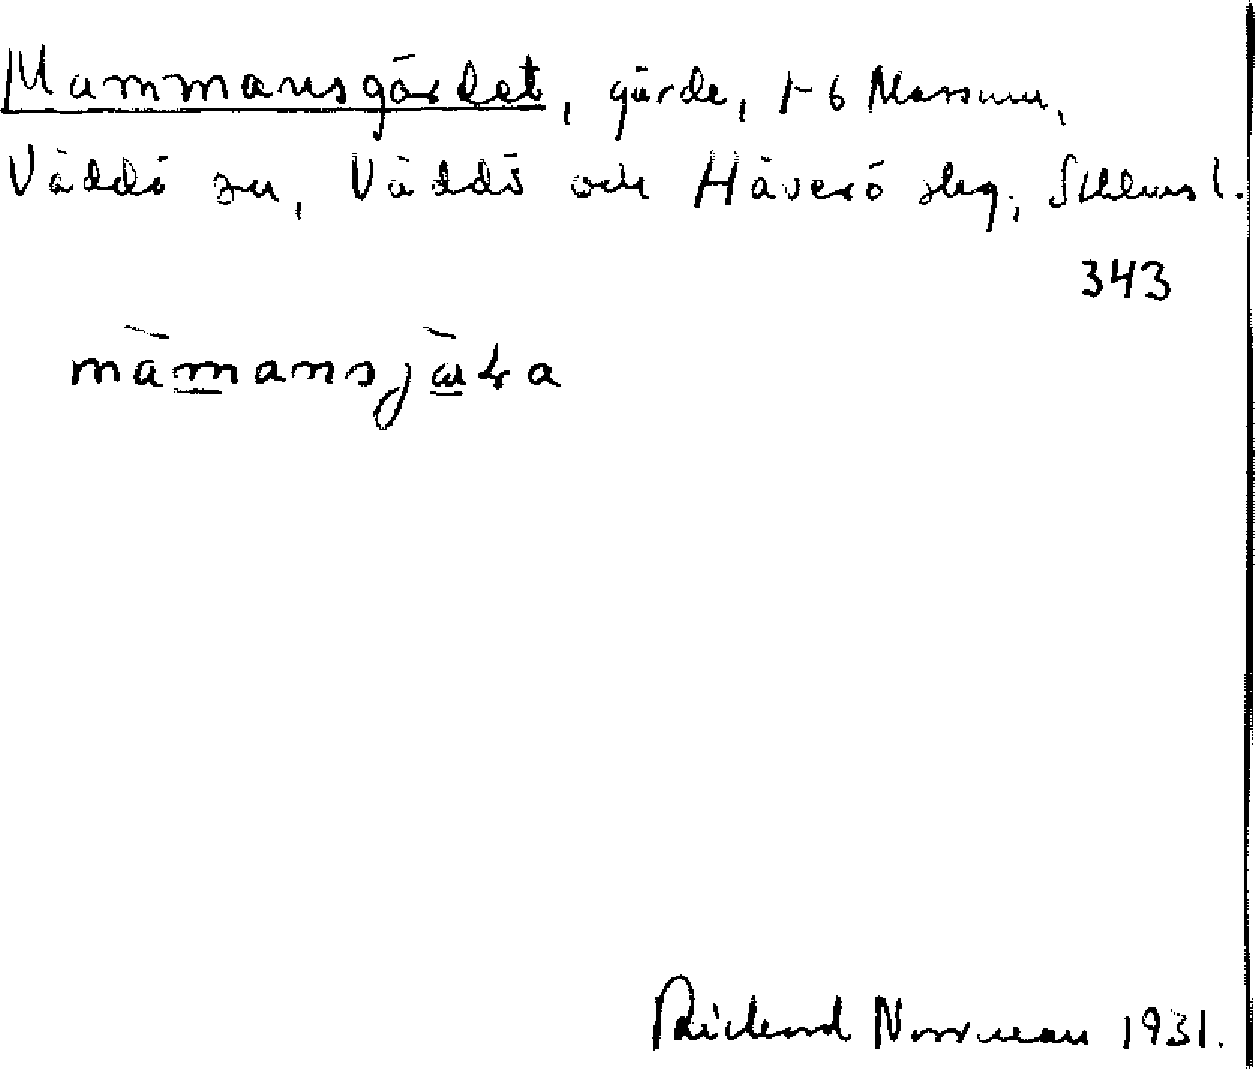 Mammansgärdet, gärde, 1-6 Massum,
Väddö sn, Väddö och Häverö skg, Sthlms l.
343
màmansjæ̀ḷa
Rickard Norrman 1931.